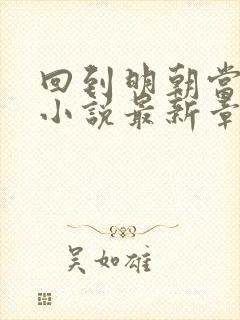 回到明朝当
小说最新章
吴如雄